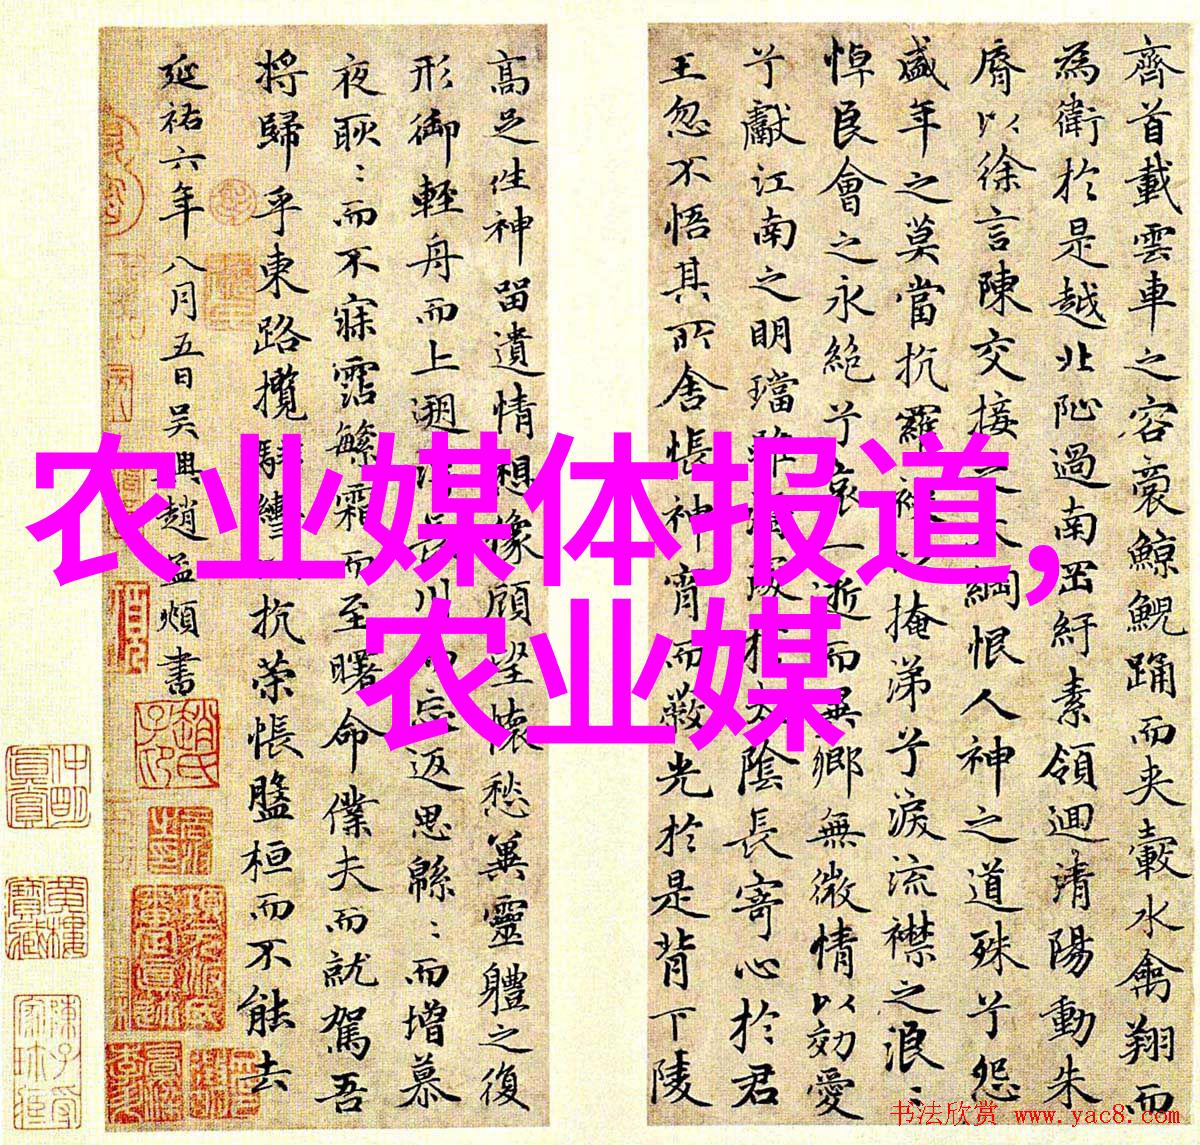 农业媒体报道，
农业媒
齊首載雲車之容裔鯨鯢踊而夾轂水禽翔而
為衛於是越北沚過南岡紆素領迴清陽動朱
脣以徐言陳交接之綱恨人神之道殊兮怨
盛年之莫當抗羅袂掩涕兮淚流襟之浪〻
悼良會之永絕兮哀一逝而異鄉無微情以効愛
兮獻江南之明璫雖太陰長寄心於君
王忽不悟其所舍悵神宵而蔽光於是背下陵
高足往神留遺情想像顧望懷愁冀靈體之復
形御輕舟而上遡川而忘返思緜〻而增慕
夜耿〻而不寐霑繁霜而至曙命僕夫而就駕吾
將歸乎東路攬騑轡抗策悵盤桓而不能去
延祐六年八月五日吳興趙孟頫書
书法欣赏 www.yac8.com